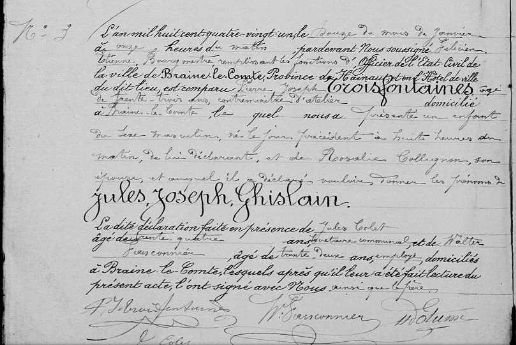 N° 3
L'an mil huit cent quatre-vingt-un, le Douze du mois de Janvier
à onze heures du matin pardevant Nous soussigné Félicien
Etienne, Bourgmestre remplissant les fonctions d'Officier de l'Etat Civil de
la ville de Braine-le-Comte, Province de Hainaut, en l'Hôtel de ville
du dit lieu, est comparu Pierre Joseph Troisfontaines âgé
de trente-trois ans, contremaître d'atelier domicilié
à Braine-le-Comte le quel nous a présenté un enfant
du sexe masculin, né le jour précédent à huit heures du
matin, de lui déclarant, et de Rosalie Collignon, son
épouse et auquel il a déclaré vouloir donner les prénoms de
Jules, Joseph, Ghislain.
La dite déclaration faite en présence de Jules Colet
âgé de trente quatre ans, secrétaire communal, et de Walter
âgé de trente deux ans, employé, domiciliés
à Braine-le-Comte, lesquels après qu'il leur a été fait lecture du
présent acte, l'ont signé avec Nous, ainsi que le père.